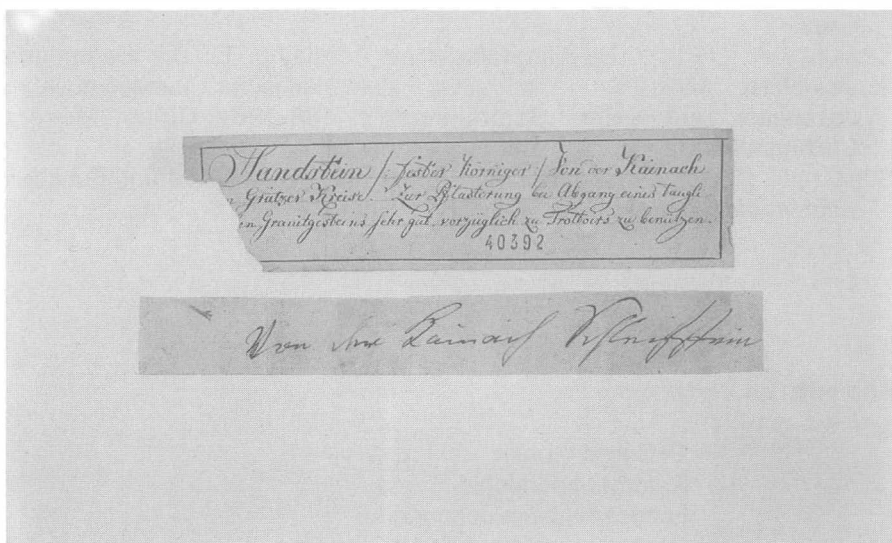 Sandstein / fester körniger / Von der Kainach
n Grätzer Kreise. Zur Pflasterung bei Abgang eines taugli
en Granitgesteins sehr gut, vorzüglich zu Trottoirs zu benützen.
40392
Von der Kainach Schleifstein